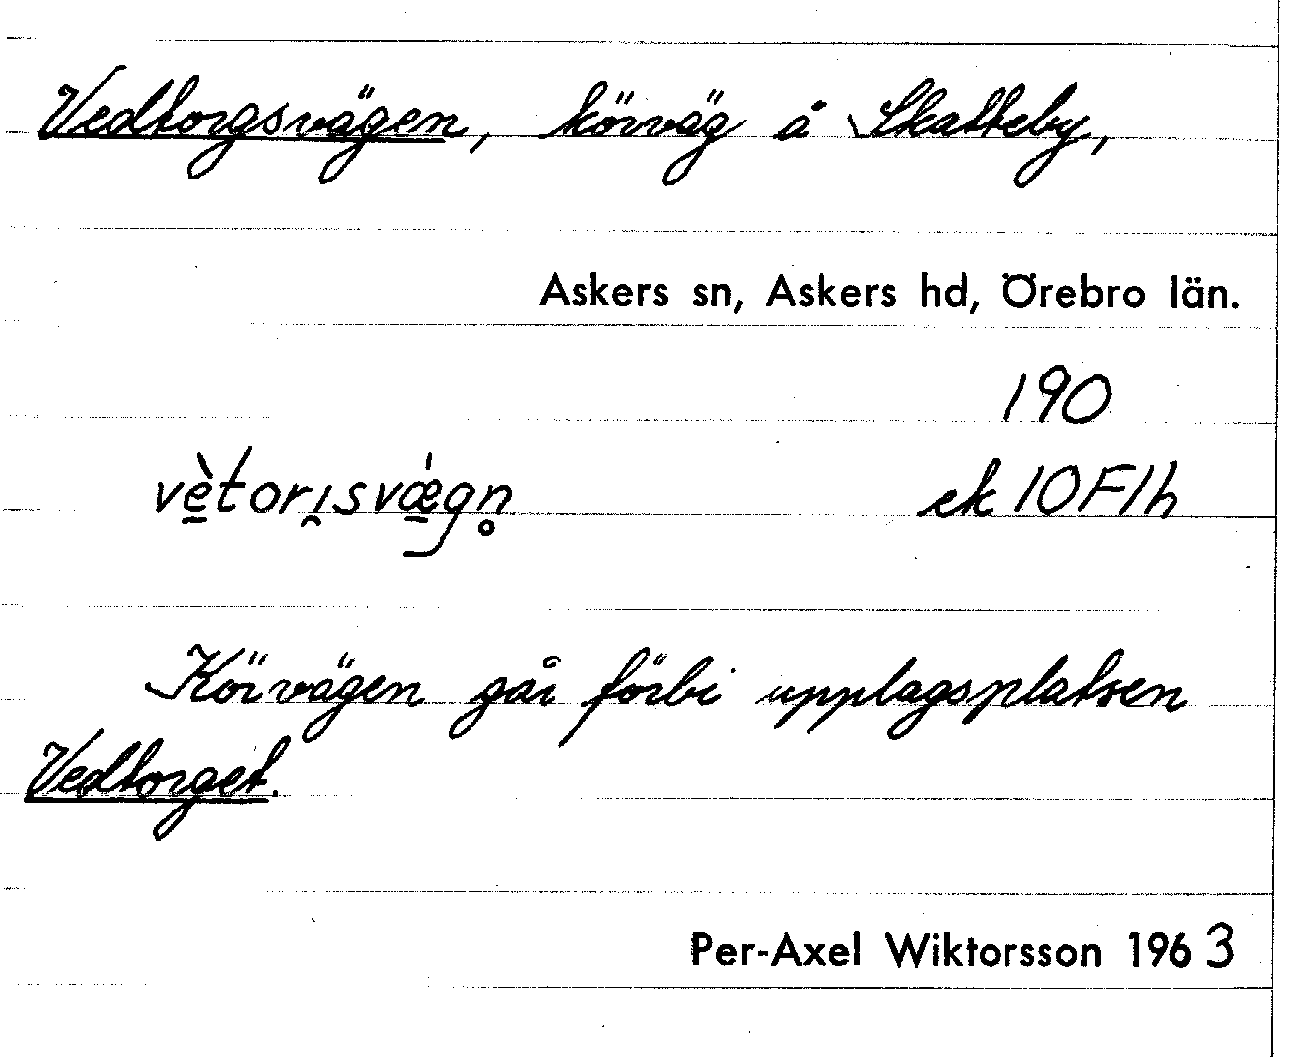 Vedtorgsvägen, körväg å Skatteby,
Askers sn, Askers hd, Örebro län.
190
vètorı̯svǽgn̥ ek 10F1h
Körvägen går förbi upplagsplatsen
Vedtorget.
Per-Axel Wiktorsson 1963